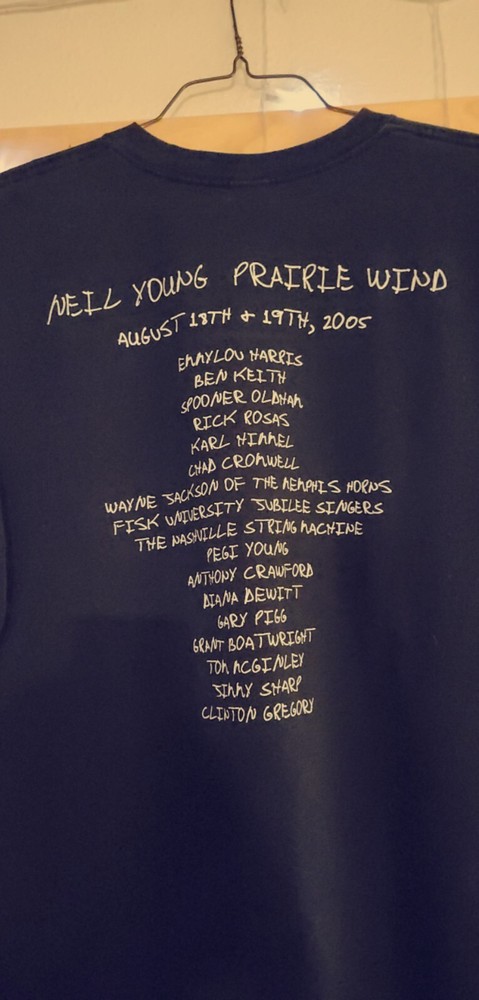 NEIL YOUNG PRAIRIE WIND
AUGUST 18TH & 19TH, 2005
EMMYLOU HARRIS
BEN KEITH
SPOONER OLDHAM
RICK ROSAS
KARL HIMMEL
CHAD CROMWELL
WAYNE JACKSON OF THE MEMPHIS HORNS
FISK UNIVERSITY JUBILEE SINGERS
THE NASHVILLE STRING MACHINE
PEGI YOUNG
ANTHONY CRAWFORD
DIANA DEWITT
GARY PIGG
GRANT BOATWRIGHT
TOM MCGINLEY
JIMMY SHARP
CLINTON GREGORY